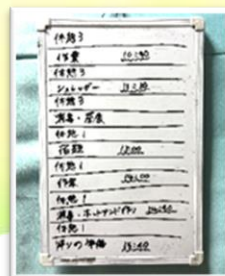 休憩3
作業 10:40
休憩3
シュレッダー 11:10
休憩3
消毒・昼食
休憩1
宿題 13:00
休憩1
作業 14:00
休憩1
消毒・ホットサンド作り
休憩1
帰りの準備 15:40